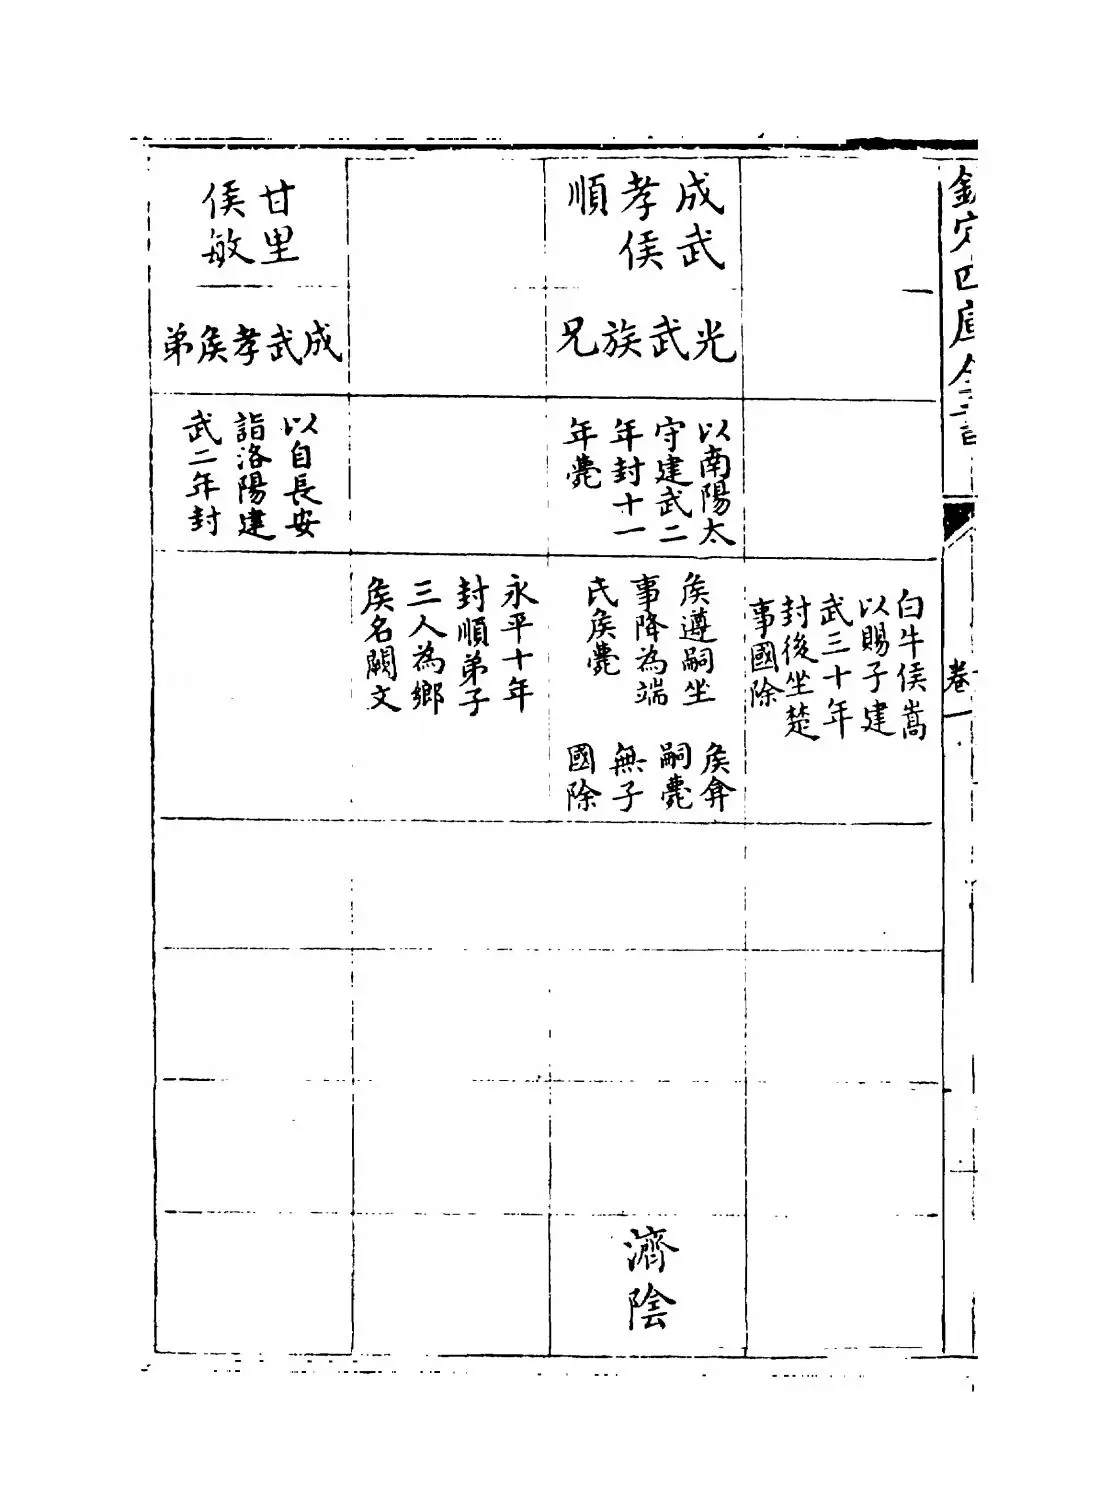 欽定四庫全書
卷
白牛侯嵩
以賜子建
武三十年
封後坐楚
事國除
成武
孝侯
順
光武族兄
以南陽太
守建武二
年封十一
年薨
侯遵嗣坐
事降為端
氏侯薨
侯弇
嗣薨
無子
國除
濟陰
永平十年
封順弟子
三人為鄉
侯名闕文
甘里
侯敏
成武孝侯弟
以自長安
詣洛陽建
武二年封